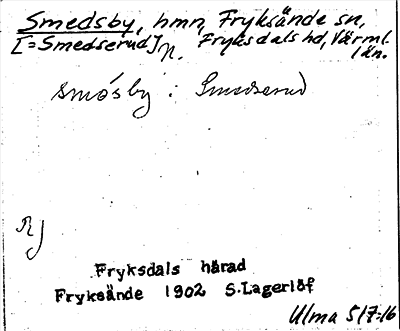 Smedsby, hmn, Fryksände sn,
[=Smedserud] n. Fryksdals hd, Värml.
län.
smósby : Smedserud
RJ
Fryksdals härad
Fryksände 1902 S.Lagerlöf
Ulma 517:16